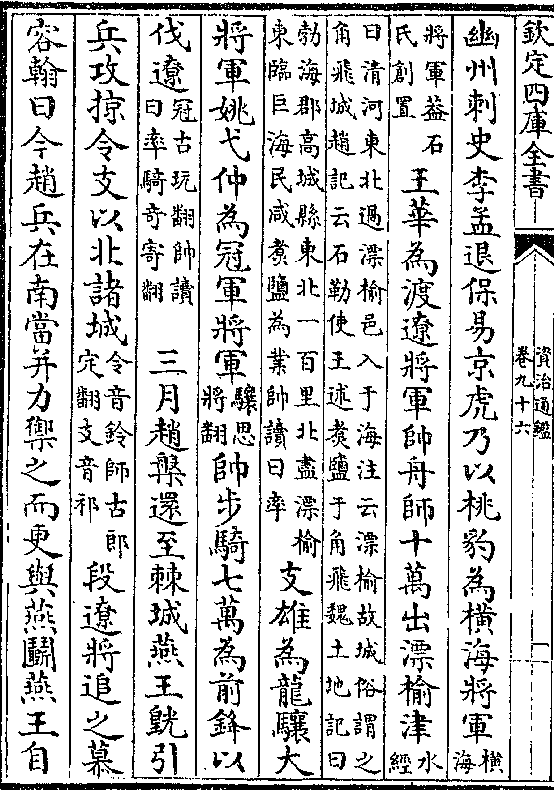 欽定四庫全書
資治通鑑
卷九十六
一
幽州刺史李孟退保易京虎乃以桃豹為橫海將軍橫海
將軍葢石氏創置王華為渡遼將軍帥舟師十萬出漂榆津水經
曰清河東北過漂榆邑入于海注云漂榆故城俗謂之
角飛城趙記云石勒使王述煑鹽于角飛魏土地記曰
勃海郡高城縣東北一百里北盡漂榆東臨巨海民咸煑鹽為業帥讀曰率支雄為龍驤大
將軍姚弋仲為冠軍將軍驤思將翻帥步騎七萬為前鋒以
伐遼冠古玩翻帥讀曰率騎奇寄翻三月趙槃還至棘城燕王皝引
兵攻掠令支以北諸城令音鈴師古郎定翻支音祁段遼將追之慕
容翰曰今趙兵在南當并力禦之而更與燕鬭燕王自